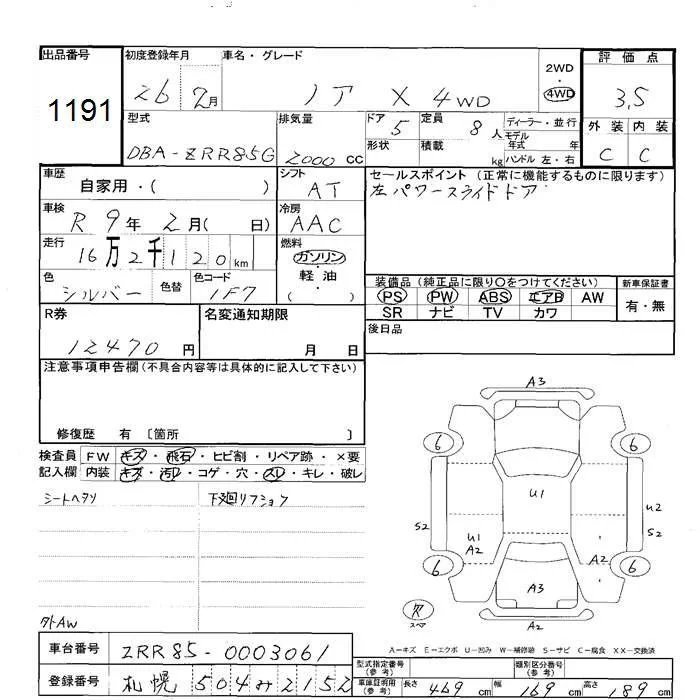 出品番号
1191
初度登録年月
26 2月
車名・グレード
ノア X 4WD
2WD
・
4WD
評価点
3,5
外装 内装
C C
型式
DBA-ZRR85G
排気量
2000 cc
ドア 5
形状
定員 8人
積載 kg
ディーラー・並行
モデル
年式 年
ハンドル 左・右
車歴
自家用・( )
シフト
AT
セールスポイント (正常に機能するものに限ります)
左パワースライドドア
車検
R 9年 2月( 日)
冷房
AAC
走行
16万2千120km
燃料
ガソリン
軽油
( )
色
シルバー
色替
色コード
1F7
装備品 (純正品に限り○をつけてください)
PS PW ABS エアB AW
SR ナビ TV カワ
新車保証書
有・無
R券
12470 円
名変通知期限
月 日
後日品
注意事項申告欄(不具合内容等は具体的に記入して下さい)
修復歴 有 〔箇所 〕
検査員 FW キズ・飛石・ヒビ割・リペア跡・×要
記入欄 内装 キズ・汚レ・コゲ・穴・スレ・キレ・破レ
シートヘタリ
下廻リフショク
外AW
A3
6 6
U1
S2
U1
A2
U2
S2
A2
6 6
A3
スペア
A2
A=キズ E=エクボ U=凹み W=補修跡 S=サビ C=腐食 XX=交換済
車台番号
ZRR85-0003061
登録番号
札幌 504み2152
型式指定番号
(参考)
類別区分番号
(参考)
車庫証明用
(参考)
長さ 469 cm 幅 169 cm 高さ 189 cm